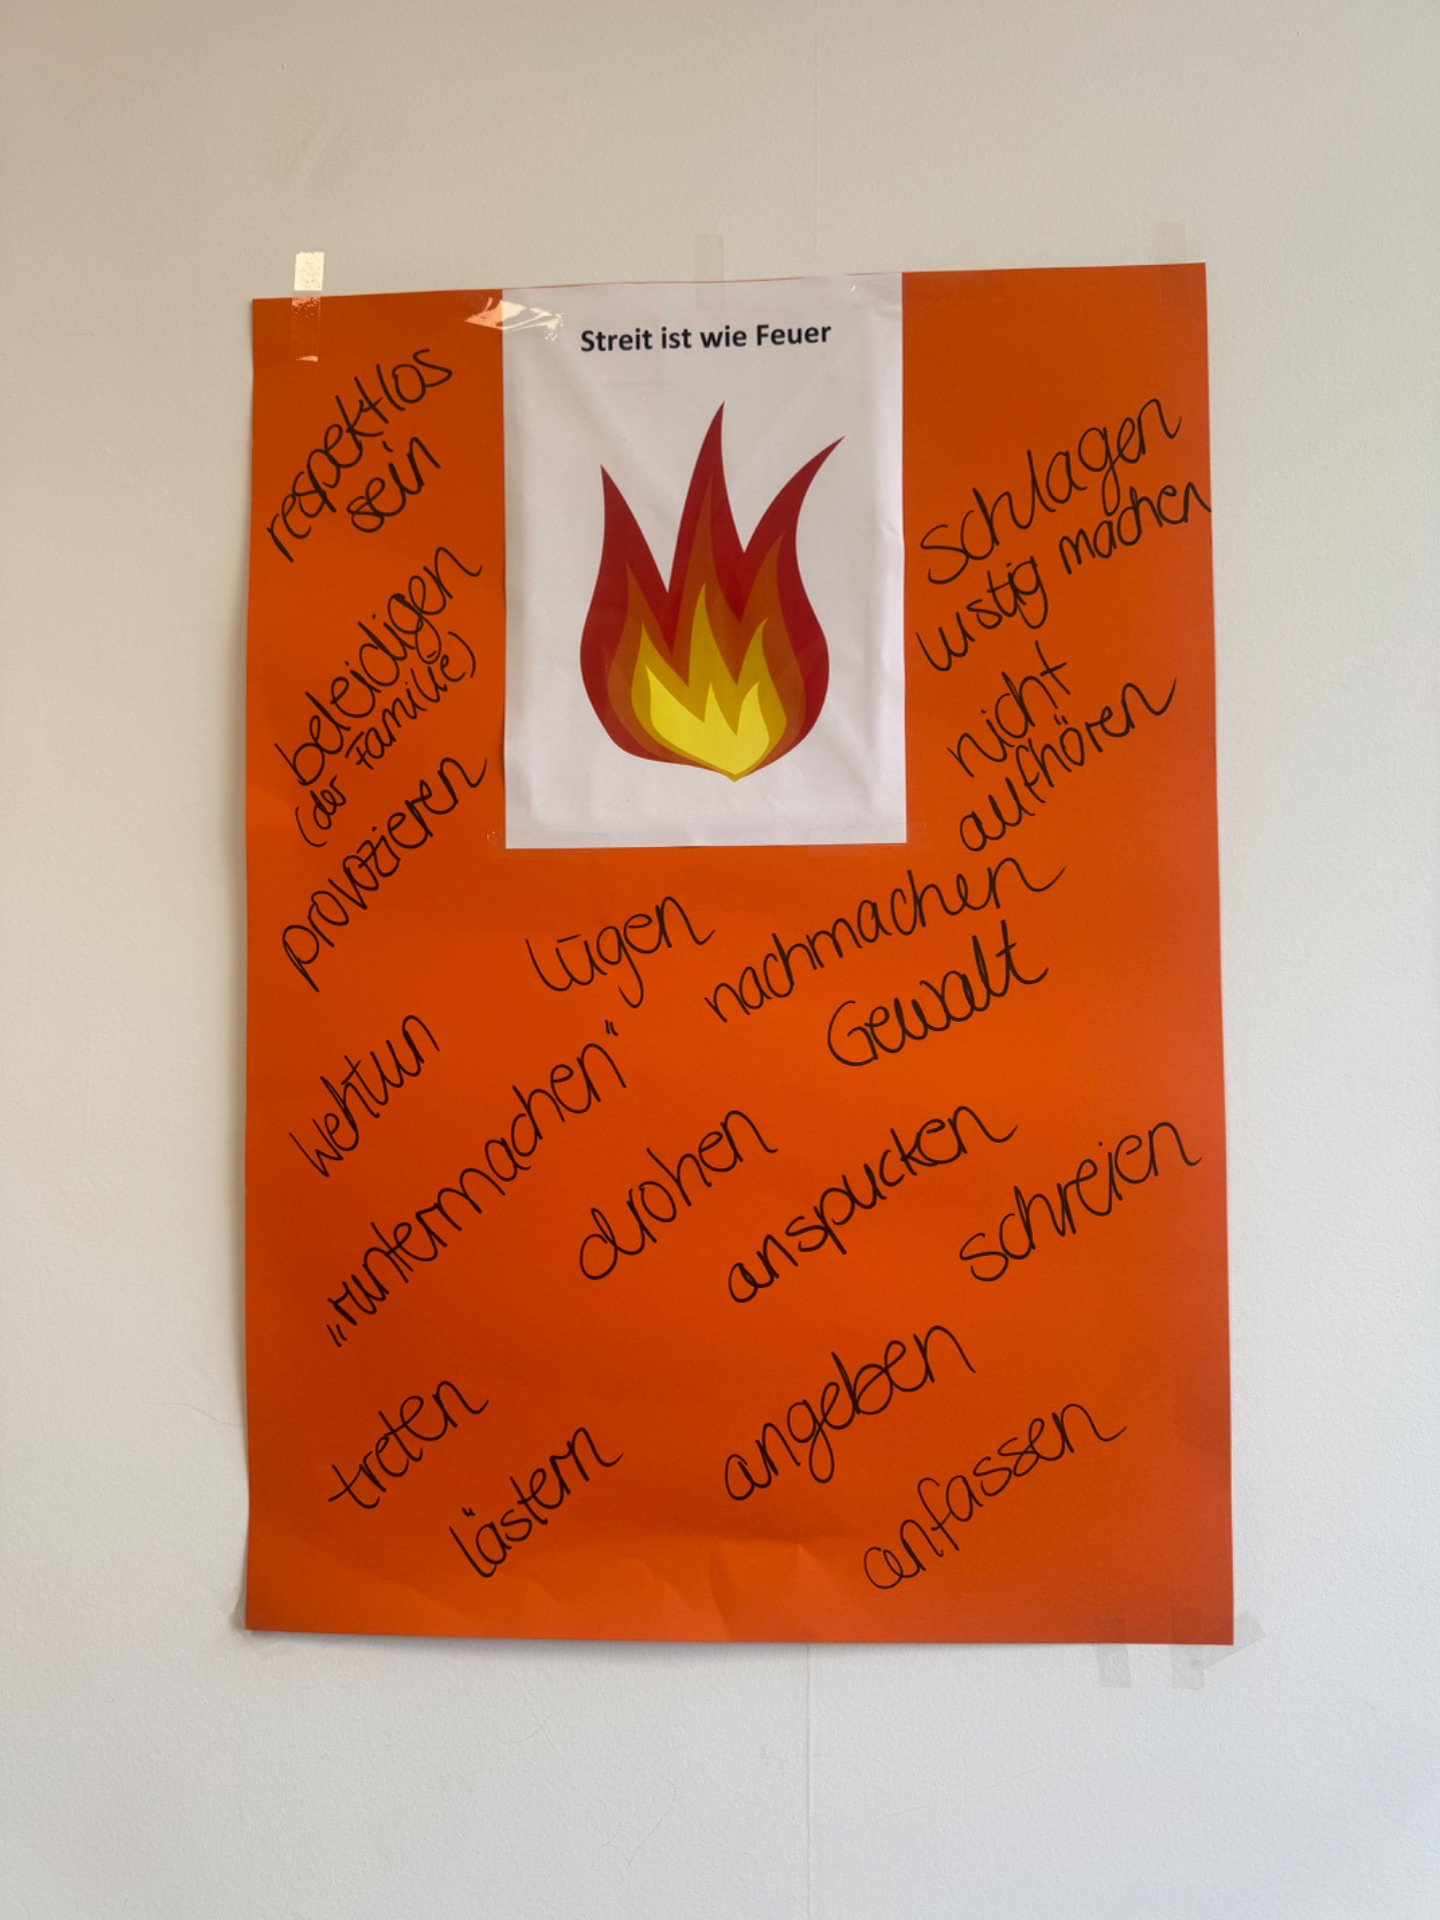 Streit ist wie Feuer
respektlos
sein
beleidigen
(der Familie)
provozieren
schlagen
lustig machen
nicht
aufhören
lügen
nachmachen
Gewalt
wehtun
„runtermachen“
drohen
anspucken
schreien
treten
lästern
angeben
anfassen